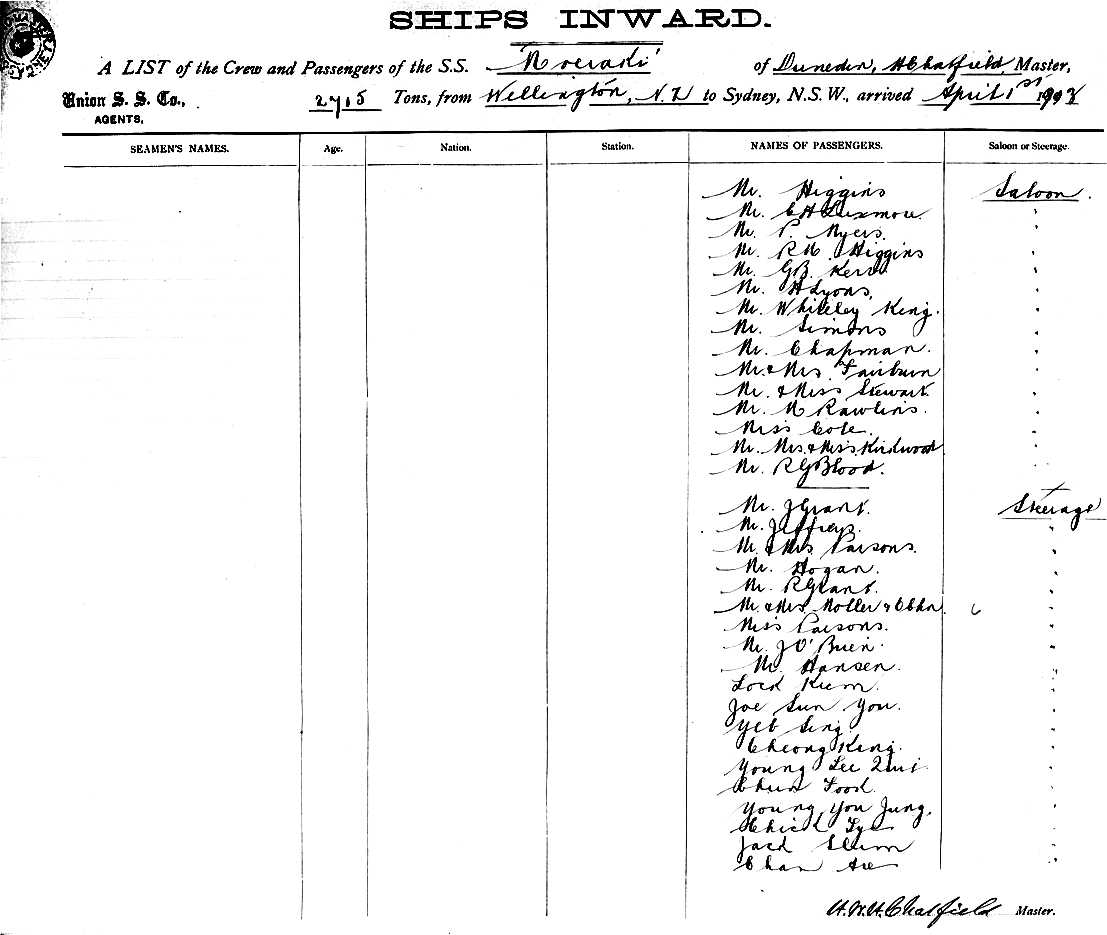 SHIPS INWARD.
A LIST of the Crew and Passengers of the S.S. Moeraki of Dunedin, A Chatfield, Master,
Union S. S. Co., 2715 Tons, from Wellington, N.Z to Sydney, N.S.W., arrived April 1st 1903
AGENTS,
SEAMEN'S NAMES. Age. Nation. Station. NAMES OF PASSENGERS. Saloon or Steerage.
Mr. Higgins Saloon.
Mr. C A Luxmore "
Mr. P. Myers. "
Mr. R M. Higgins "
Mr. G B. Kerr "
Mr. A Lyons, "
Mr. Whiteley King. "
Mr. Simons "
Mr. Chapman. "
Mr. & Mrs. Fairburn "
Mr. & Miss Stewart. "
Mr. M Rawlins. "
Miss Cole. "
Mr. Mrs. & Miss. Kirkwood "
Mr. R G Blood. "
Mr. J Grant. Steerage
Mr. Jeffreys. "
Mr. & Mrs Parsons. "
Mr. Hogan. "
Mr. R Grant. "
Mr. & Mrs Moller & Chn. "
Miss Parsons. "
Mr. J O'Brien. "
Mr. Hansen. "
Lock Kum. "
Joe Sun You. "
Yet Sing. "
Cheong King. "
Young Lee "
Chun Food. "
Young You Jung. "
Chick "
Jack "
Chan "
Chatfield Master.